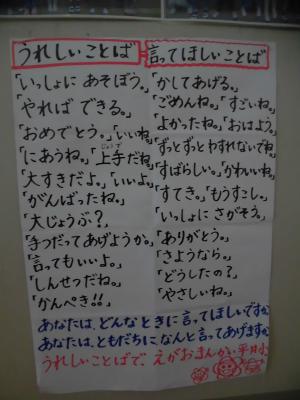 うれしいことば
「いっしょに あそぼう。」
「やれば できる。」
「おめでとう。」「いいね。」
「にあうね。」「上手だね。」
じょうず
「大すきだよ。」「いいよ。」
「がんばったね。」
「大じょうぶ?」
「手つだってあげようか。」
「言ってもいいよ。」
「しんせつだね。」
「かんぺき!!」
言ってほしいことば
「かしてあげる。」
「ごめんね。」「すごいね。」
「よかったね。」「おはよう。」
「ずっとずっとわすれないでね。」
「すばらしい。」「かわいいね。」
「すてき。」「もうすこし。」
「いっしょに さがそう。」
「ありがとう。」
「さようなら。」
「どうしたの?」
「やさしいね。」
あなたは、どんなときに言ってほしいですか
あなたは、ともだちになんと言ってあげますか
うれしいことばで、えがおまんかい平井小